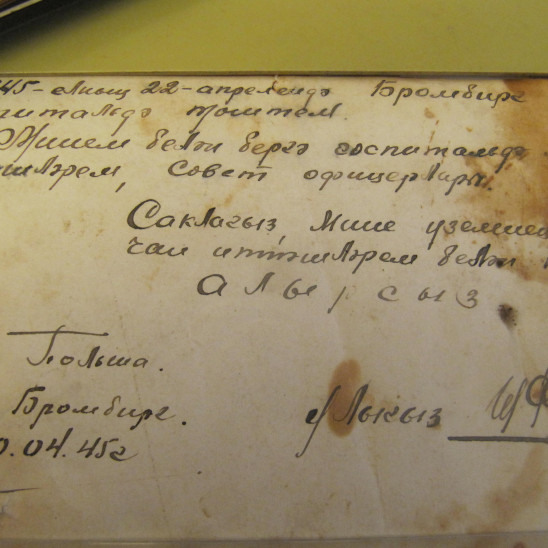 45-елның 22-апрелендә Бромбирг
питальдә төштем.
Минем белән бергә госпитальдә
шләрем, Совет офицерлары.
Саклагыз, мине үземнең
чан иптәшләрем белән
алы, сыз.
Польша.
Бромбирг.
0.04.45г